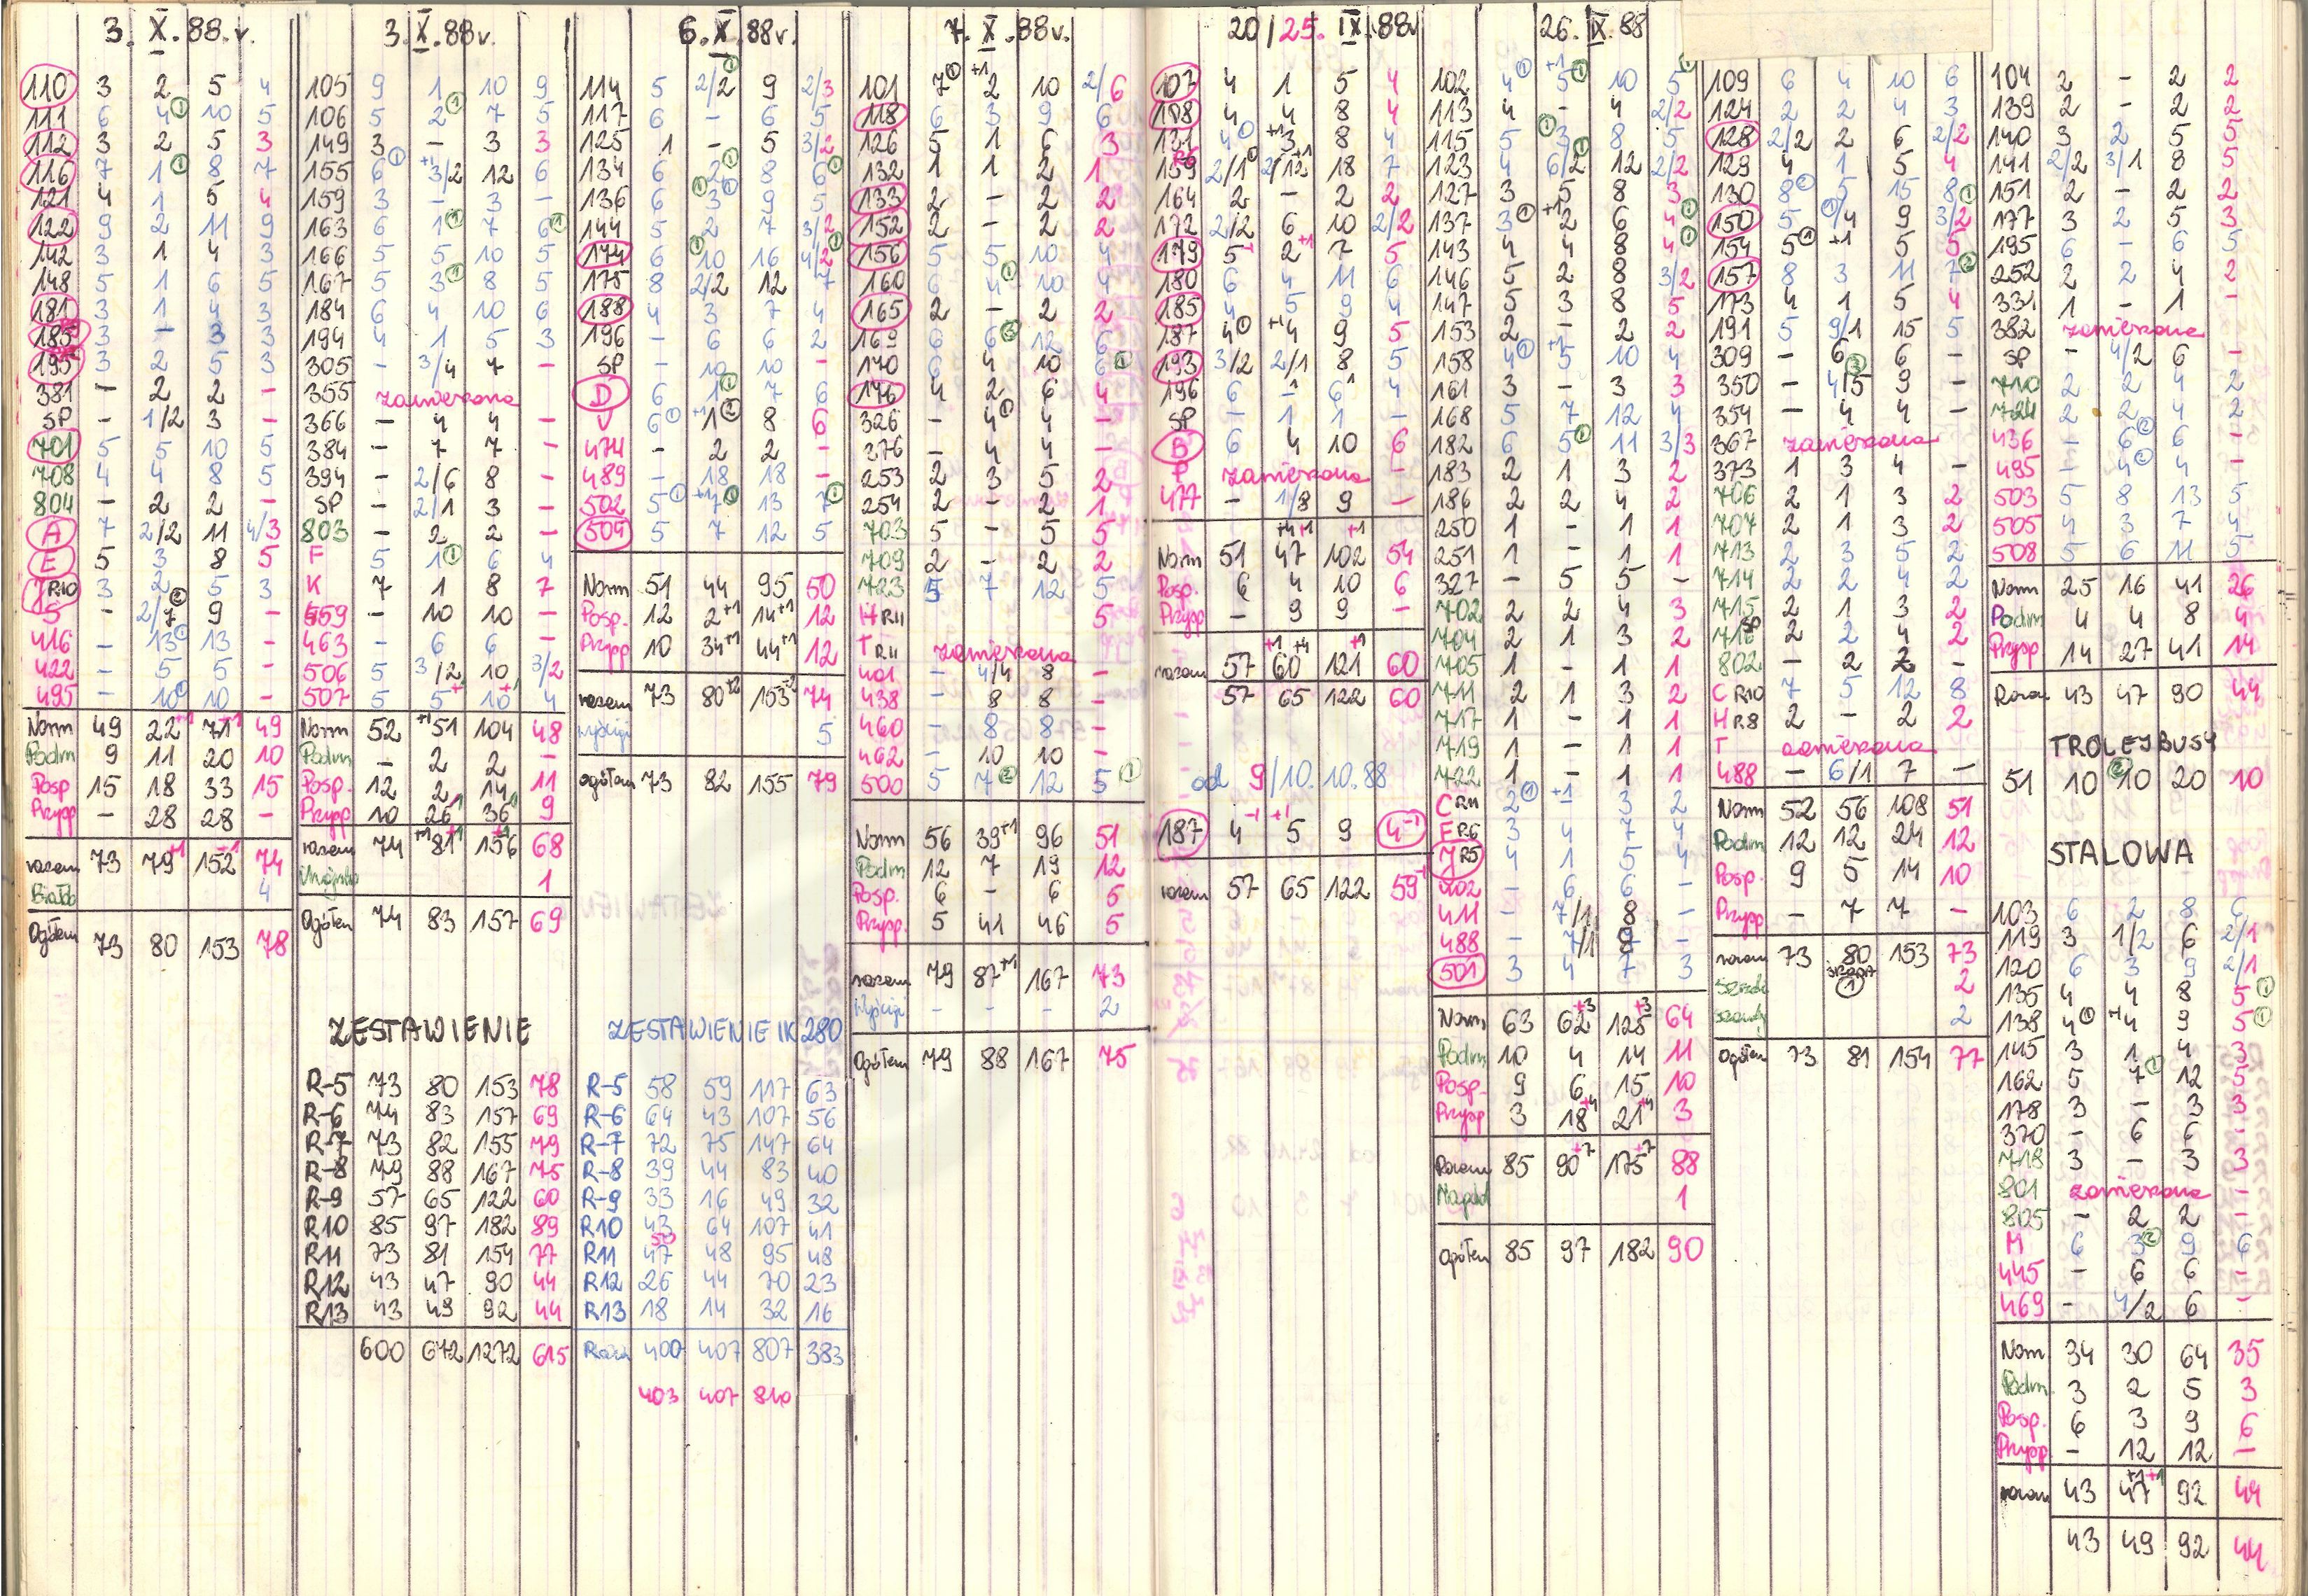 3. X. 88. r.
110 3 2 5 4
111 6 4① 10 5
112 3 2 5 3
116 7 1① 8 7
121 4 1 5 4
122 9 2 11 9
142 3 1 4 3
148 5 1 6 5
181 3 1 4 3
185 3 - 3 3
195 3 2 5 3
381 - 2 2 -
SP - 1/2 3 -
701 5 5 10 5
708 4 4 8 5
804 - 2 2 -
A 7 2/2 11 4/3
E 5 3 8 5
J R10 3 2 5 3
S - 2/7② 9 -
416 - 13① 13 -
422 - 5 5 -
495 - 10① 10 -
Norm 49 22+1 71+1 49
Podm 9 11 20 10
Posp 15 18 33 15
Przysp - 28 28 -
razem 73 79+1 152+1 74
4
Ogółem 73 80 153 78
3. X. 88r.
105 9 1 10 9
106 5 2① 7 5
149 3 - 3 3
155 6① +1 3/2 12 6
159 3 - 3 -
163 6 1① 7 6①
166 5 5 10 5
167 5 3① 8 5
184 6 4 10 6
194 4 1 5 3
305 - 3/4 7 -
355 zawieszona
366 - 4 4 -
384 - 7 7 -
394 - 2/6 8 -
SP - 2/1 3 -
803 - 2 2 -
F 5 1① 6 4
K 7 1 8 7
459 - 10 10 -
463 - 6 6 -
506 5 3/2 10 3/2
507 5 5+ 10+ 4
Norm 52 +1 51 104 48
Podm - 2 2 -
Posp. 12 2 14 11
Przysp 10 26+1 36+1 9
razem 74 +1 81+1 156+1 68
1
Ogółem 74 83 157 69
ZESTAWIENIE
R-5 73 80 153 78
R-6 74 83 157 69
R-7 73 82 155 79
R-8 79 88 167 75
R-9 57 65 122 60
R10 85 97 182 89
R11 73 81 154 77
R12 43 47 90 44
R13 43 49 92 44
600 672 1272 615
6. X. 88r.
114 5 2/2① 9 2/3
117 6 - 6 5
125 1 - 5 3/2
134 6 2① 8 6①
136 6① 3① 9 5
144 5 2 7 3/2
174 6① 10 16 4/2①
175 8 2/2 12 7
188 4 3 7 4
196 - 6 6 2
SP - 10 10 -
D 6 1① 7 6
V 6① +1 1② 8 6
474 - 2 2 -
489 - 18 18 -
502 5① +1 7① 13 7①
504 5 7 12 5
Norm 51 44 95 50
Posp. 12 2+1 14+1 12
Przysp 10 34+1 44+1 12
razem 73 80+2 153+2 74
5
ogółem 73 82 155 79
ZESTAWIENIE IK 280
R-5 58 59 117 63
R-6 64 43 107 56
R-7 72 75 147 64
R-8 39 44 83 40
R-9 33 16 49 32
R10 43 64 107 41
R11 50 47 48 95 48
R12 26 44 70 23
R13 18 14 32 16
Razem 400 407 807 383
403 407 810
7. X. 88r.
101 7① +1 2 10 2/6
118 6 3 9 6
126 5 1 6 3
132 1 1 2 1
133 2 - 2 2
152 2 - 2 2
156 5 5 10 4
160 6 4① 10 4
165 2 - 2 2
169 6 6③ 12 6
170 6 4 10 6①
176 4 2 6 4
326 - 4① 4 -
276 - 4 4 -
253 2 3 5 2
254 2 - 2 1
703 5 - 5 5
709 2 - 2 2
723 5 7 12 5
H R11 5
T R11 zawieszona
401 - 4/4 8 -
438 - 8 8 -
460 - 8 8 -
462 - 10 10 -
500 5 7② 12 5①
Norm 56 39+1 96 51
Podm 12 7 19 12
Posp. 6 - 6 5
Przysp. 5 41 46 5
razem 79 87+1 167 73
- - - 2
Ogółem 79 88 167 75
20/25. IX. 88r
107 4 1 5 4
108 4 4 8 4
131 4① +1 3 8 4
159 2/1① 2/12+1 18 7
164 2 - 2 2
172 2/2 6 10 2/2
179 5- 2+1 7 5
180 6 4 11 6
185 4 5 9 4
187 4① +1 4 9 5
193 3/2 2/1 8 5
196 6 - 6 4
SP - 1 1 -
B 6 4 10 6
P zawieszona -
477 - 1/8 9 -
Norm 51 +4+1 47 +1 102 54
Posp. 6 4 10 6
Przysp - 9 9 -
razem 57 +1+4 60 +1 121 60
57 65 122 60
od 9/10. 10. 88
187 4-1 +1 5 9 4-1
razem 57 65 122 59-1
26. IX. 88
102 4① +1 5① 10 5①
113 4 - 4 2/2
115 5 3① 8 5
123 4 6/2① 12 2/2
127 3 5 8 3
137 3① +1 2 6 4①
143 4 4 8 4①
146 5 2 8 3/2
147 5 3 8 5
153 2 - 2 2
158 4① +1 5 10 4
161 3 - 3 3
168 5 7 12 4
182 6 5① 11 3/3
183 2 1 3 2
186 2 2 4 2
250 1 - 1 1
251 1 - 1 1
327 - 5 5 -
702 2 2 4 3
704 2 1 3 2
705 1 - 1 1
711 2 1 3 2
717 1 - 1 1
719 1 - 1 1
722 1 - 1 1
C R11 2① +1 3 2
E R6 3 4 7 4
J R5 4 1 5 4
402 - 6 6 -
411 - 7/1 8 -
488 - 7/1 8 -
501 3 4 7 3
Norm 63 62+3 125+3 64
Podm 10 4 14 11
Posp. 9 6 15 10
Przysp 3 18+4 21+4 3
Razem 85 90+7 175+7 88
1
ogółem 85 97 182 90
109 6 4 10 6
124 2 2 4 3
128 2/2 2 6 2/2
129 4 1 5 4
130 8② 5 15 8①
150 5 ①/4 9 3/2
154 5① +1 5 5
157 8 3 11 7②
173 4 1 5 4
191 5 9/1 15 5
309 - 6 6 -
350 - 4/5③ 9 -
354 - 4 4 -
367 zawieszona
373 1 3 4 -
706 2 1 3 2
707 2 1 3 2
713 2 3 5 2
714 2 2 4 2
715 2 1 3 2
716 SP 2 2 4 2
802 - 2 2 -
C R10 7 5 12 8
H R8 2 - 2 2
T zawieszona
488 - 6/1 7 -
Norm 52 56 108 51
Podm 12 12 24 12
Posp. 9 5 14 10
Przysp - 7 7 -
razem 73 80 153 73
① 2
2
ogółem 73 81 154 77
104 2 - 2 2
139 2 - 2 2
140 3 2 5 5
141 2/2 3/1 8 5
151 2 - 2 2
177 3 2 5 3
195 6 - 6 5
252 2 2 4 2
331 1 - 1 -
382 zawieszona
SP - 4/2 6 -
710 2 2 4 2
724 2 2 4 2
436 - 6② 6 -
495 - 4② 4 -
503 5 8 13 5
505 4 3 7 4
508 5 6 11 5
Norm 25 16 41 26
Podm 4 4 8 4
Przysp 14 27 41 14
Razem 43 47 90 44
TROLEJBUSY
51 10 ②10 20 10
STALOWA
103 6 2 8 6
119 3 1/2 6 2/1
120 6 3 9 2/1
135 4 4 8 5①
138 4① +1 4 9 5①
145 3 1 4 3
162 5 7① 12 5
178 3 - 3 3
370 - 6 6 -
718 3 - 3 3
801 zawieszona -
805 - 2 2 -
M 6 3② 9 6
445 - 6 6 -
469 - 4/2 6 -
Norm 34 30 64 35
Podm 3 2 5 3
Posp. 6 3 9 6
Przysp - 12 12 -
razem 43 +1+1 47 92 44
43 49 92 44